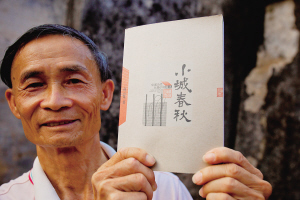 小城春秋